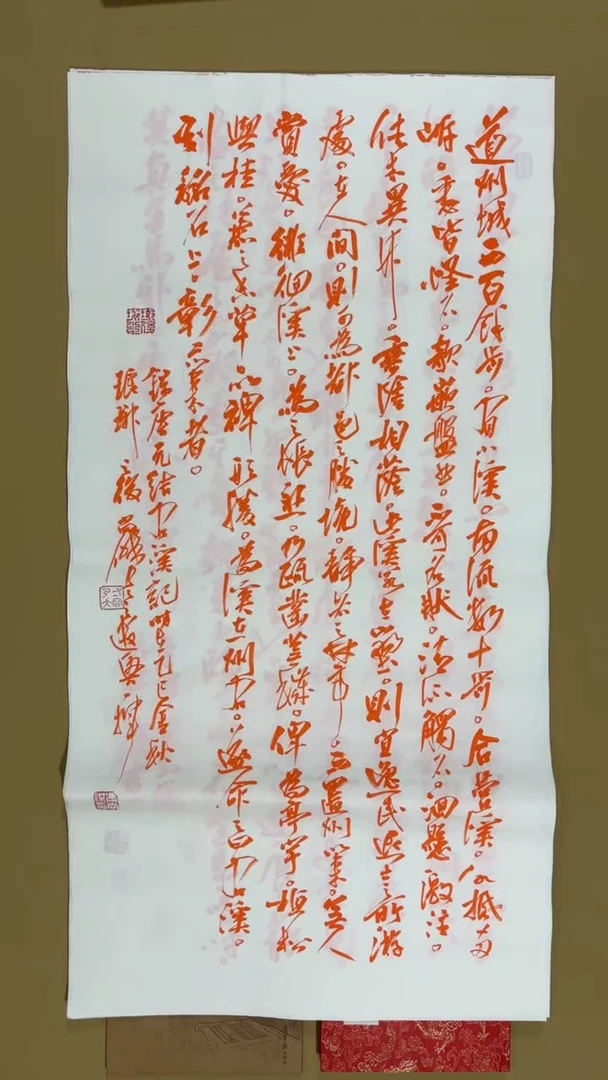 道州城西百餘步。有小溪。南流數十步。合營溪。水抵兩
岸。悉皆怪石。欹嵌盤屈。不可名狀。清流觸石。洄懸激注。
佳木異竹。垂陰相蔭。此溪若在山野。則宜逸民退士之所游
處。在人間。則可為都邑之勝境。靜者之林亭。而置州以來。無人
賞愛。徘徊溪上。為之悵然。乃疏鑿蕪穢。俾為亭宇。植松
與桂。兼之香草。以裨形勝。為溪在州右。遂命之曰右溪。
刻銘石上。彰示來者。
錄唐元結右溪記時在乙巳金秋
琅琊